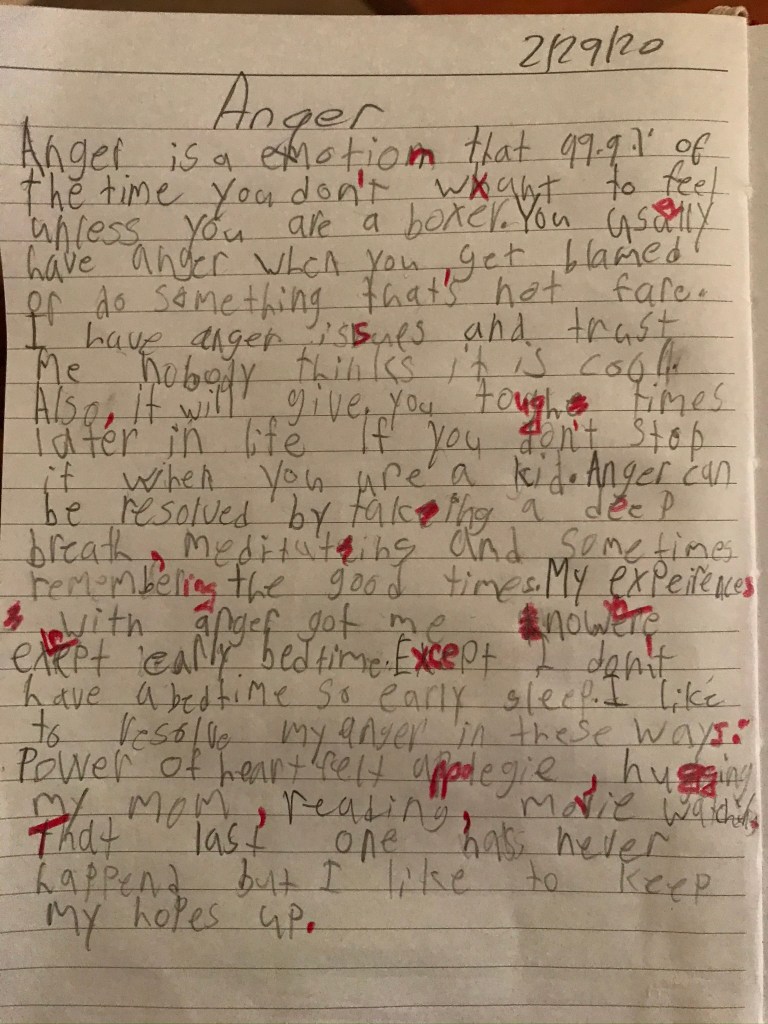 2/29/20
Anger
Anger is a emotion that 99.9% of
the time you don't wxant to feel
unless you are a boxer. You usally
have anger when you get blamed
or do something that's not fare.
I have anger issues and trust
me nobody thinks it is cool.
Also, it will give you tough times
later in life if you don't stop
it when you are a kid. Anger can
be resolved by taking a deep
breath, meditating and sometimes
remembering the good times. My expeirences
with anger got me nowere
exept early bedtime. Except I don't
have a bedtime so early sleep. I like
to resolve my anger in these ways:
Power of heart felt appolegie, hugging
my mom, reading, movie watching.
That last one has never
happend but I like to keep
my hopes up.